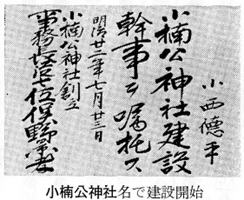 小西徳平
小楠公神社建設
幹事ヲ嘱托ス
明治廿二年七月廿三日
小楠公神社創立
事務
小楠公神社名で建設開始